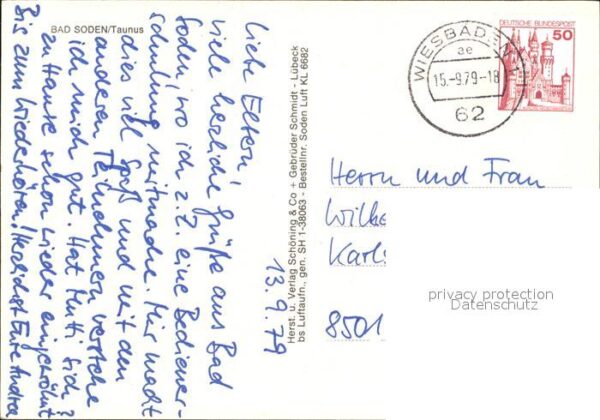 BAD SODEN/Taunus
13.9.79
Liebe Eltern,
viele herzliche Grüße aus Bad
Soden, wo ich z.Z. eine Bediener-
schulung mitmache. Mir macht
dies viel Spaß und mit den
anderen Teilnehmern verstehe
ich mich gut. Hat Mutti sich
zu Hause schon wieder eingewöhnt?
Bis zum Wiederhören! Herzlichst Eure Andrea
Herst. u. Verlag Schöning & Co + Gebrüder Schmidt - Lübeck
bs Luftaufn., gen. SH 1-38063 - Bestellnr. Soden Luft KL 6682
WIESBADEN
ae
15.-9.79-18
62
DEUTSCHE BUNDESPOST
50
Herrn und Frau
Wilhe
Karls
8501
privacy protection
Datenschutz